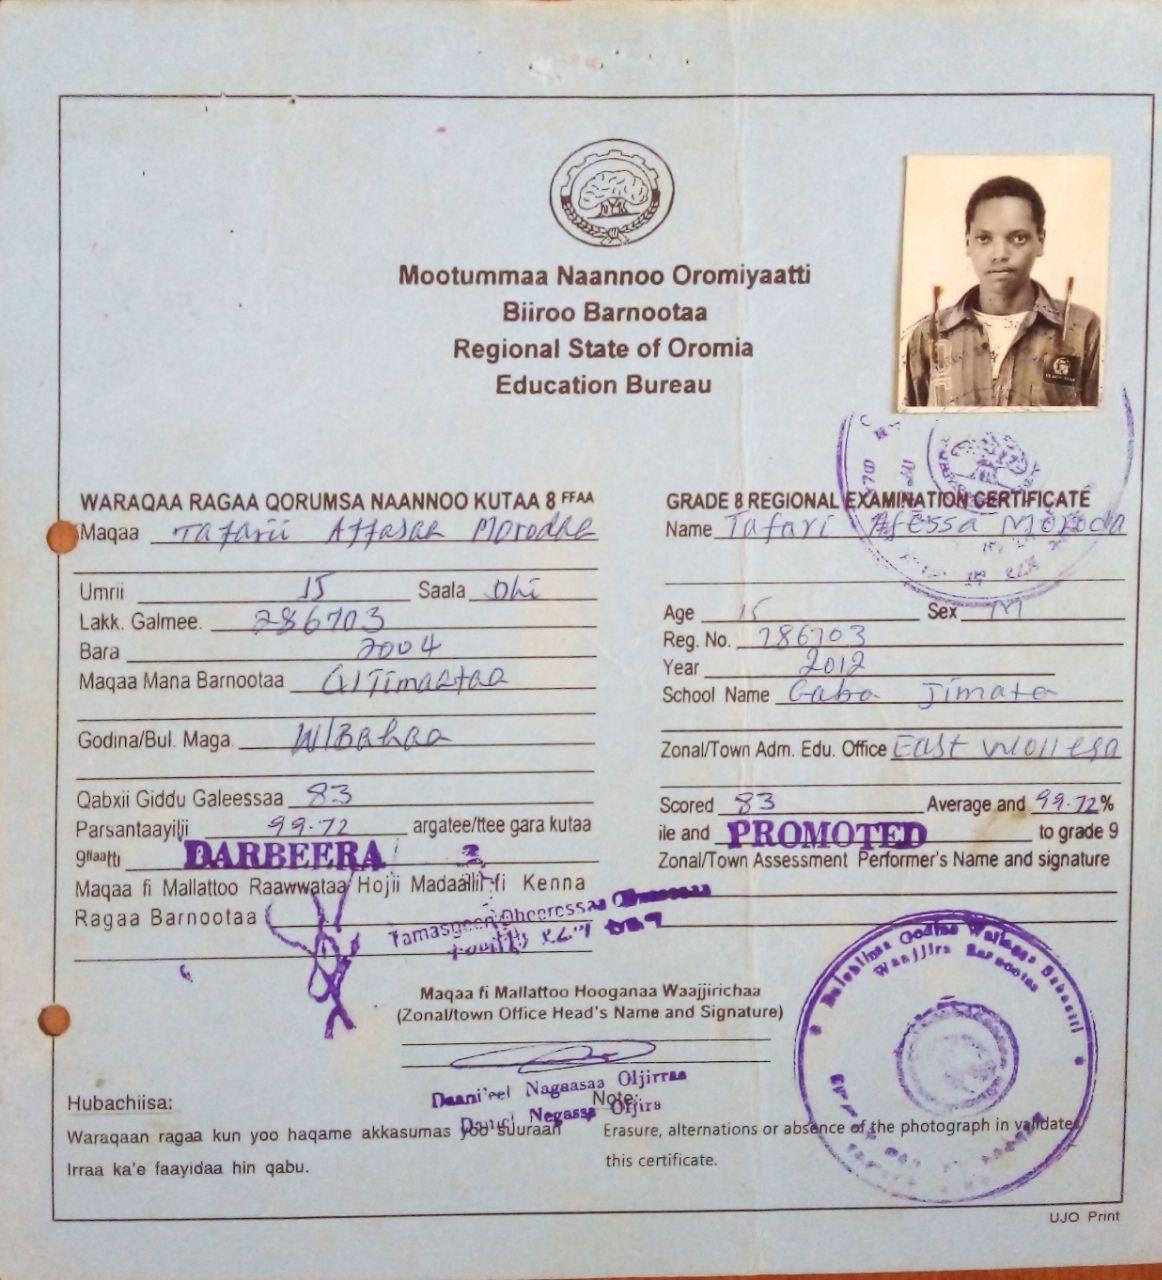 Mootummaa Naannoo Oromiyaatti
Biiroo Barnootaa
Regional State of Oromia
Education Bureau
WARAQAA RAGAA QORUMSA NAANNOO KUTAA 8 FFAA
Maqaa Tafarii Affasaa Morodaa
Umrii 15 Saala Dhi
Lakk. Galmee. 286703
Bara 2004
Maqaa Mana Barnootaa G/Jimaataa
Godina/Bul. Maga. W/Bahaa
Qabxii Giddu Galeessaa 83
Parsantaayilii 99.72 argatee/ttee gara kutaa
9ffaatti DARBEERA
Maqaa fi Mallattoo Raawwataa Hojii Madaallii fi Kenna
Ragaa Barnootaa
Tamasgeen Dheeressaa
GRADE 8 REGIONAL EXAMINATION CERTIFICATE
Name Tafari Afessa Moroda
Age 15 Sex M
Reg. No. 286703
Year 2012
School Name Gaba Jimata
Zonal/Town Adm. Edu. Office East Wollega
Scored 83 Average and 99.72%
ile and PROMOTED to grade 9
Zonal/Town Assessment Performer's Name and signature
Maqaa fi Mallattoo Hooganaa Waajjirichaa
(Zonal/town Office Head's Name and Signature)
Daani'eel Nagaasaa Oljirraa
Daniel Negassa Oljira
Hubachiisa:
Waraqaan ragaa kun yoo haqame akkasumas yoo suuraan
Irraa ka'e faayidaa hin qabu.
Note:
Erasure, alternations or absence of the photograph in validates
this certificate.
Godina Wallagga Bahaatti
Waajjira Barnootaa
UJO Print